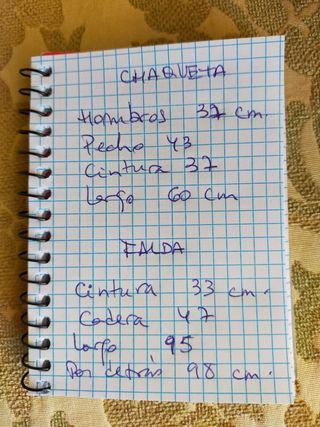 CHAQUETA
Hombros 37 cm.
Pecho 43
Cintura 37
Largo 60 cm
FALDA
Cintura 33 cm.
Cadera 47
Largo 95
Por detrás 98 cm.